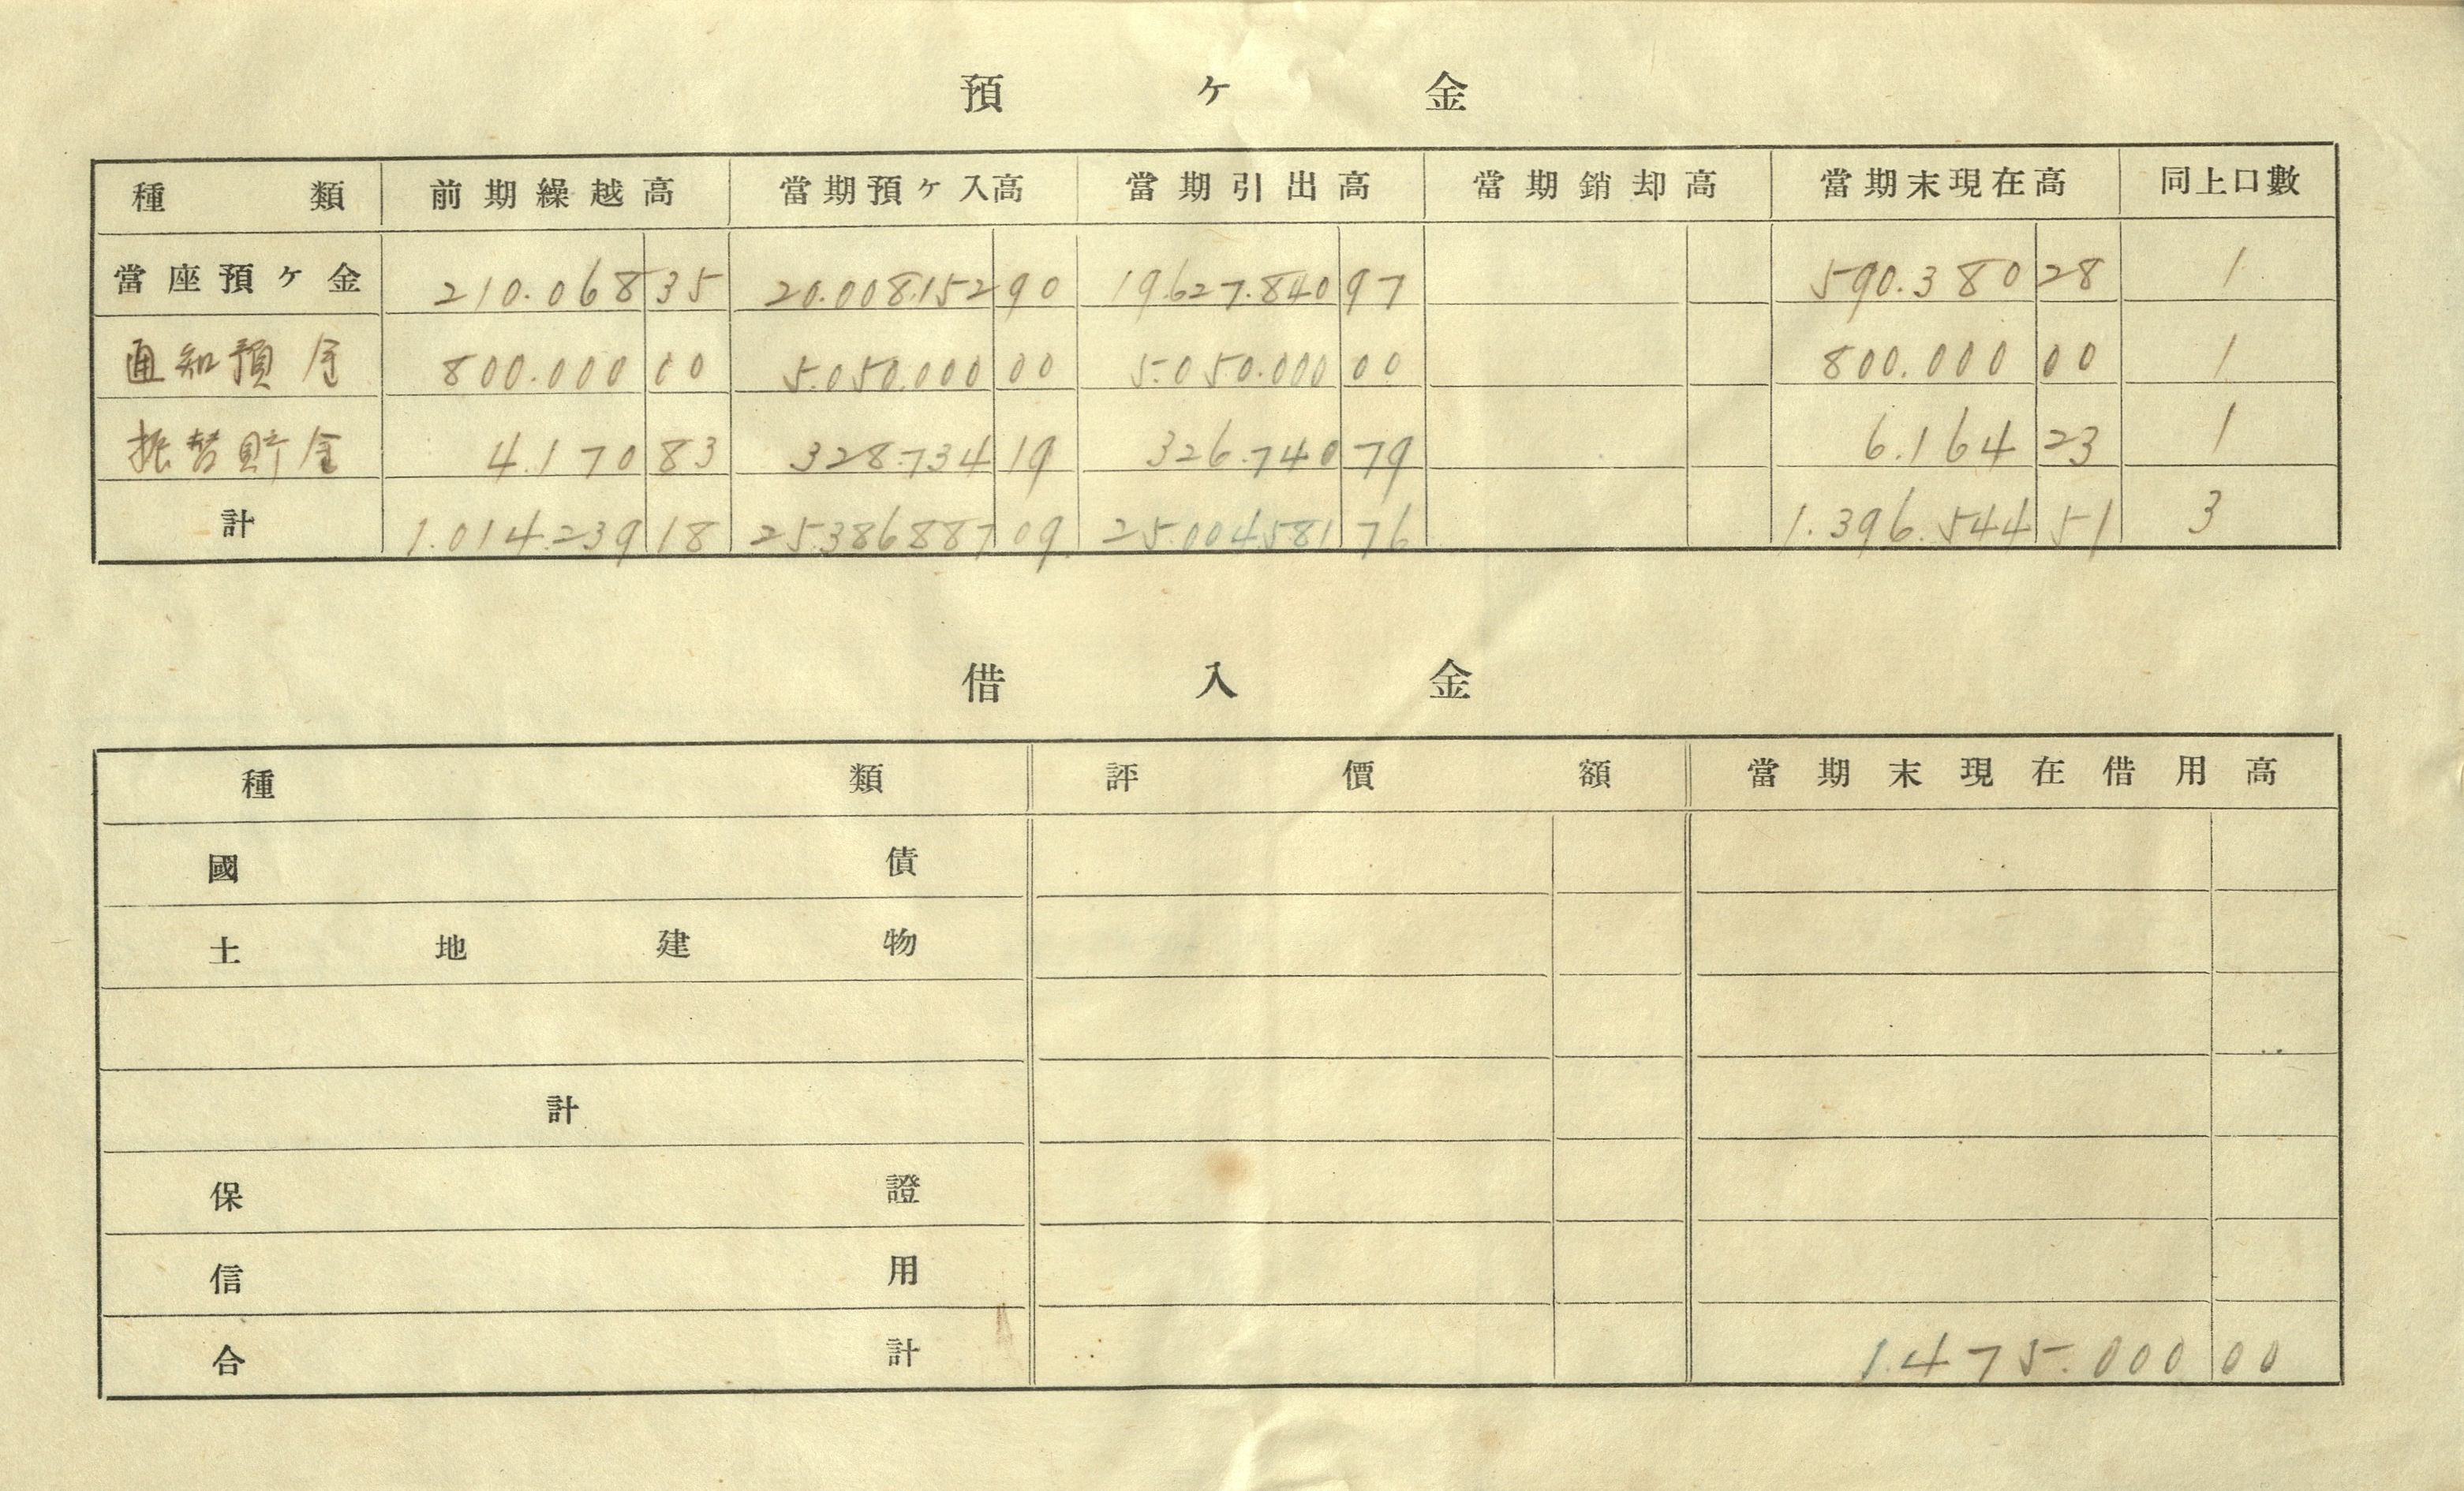 預ヶ金
種類 前期繰越高 當期預ヶ入高 當期引出高 當期銷却高 當期末現在高 同上口數
當座預ヶ金 210.068 35 20.008.152 90 19.627.840 97 590.380 28 1
通知預金 800.000 00 5.050.000 00 5.050.000 00 800.000 00 1
振替貯金 4.170 83 328.734 19 326.740 79 6.164 23 1
計 1.014.239 18 25.386887 09 25.004.581 76 1.396.544 51 3
借入金
種類 評價額 當期末現在借用高
國債
土地建物
計
保證
信用
合計 1.475.000 00